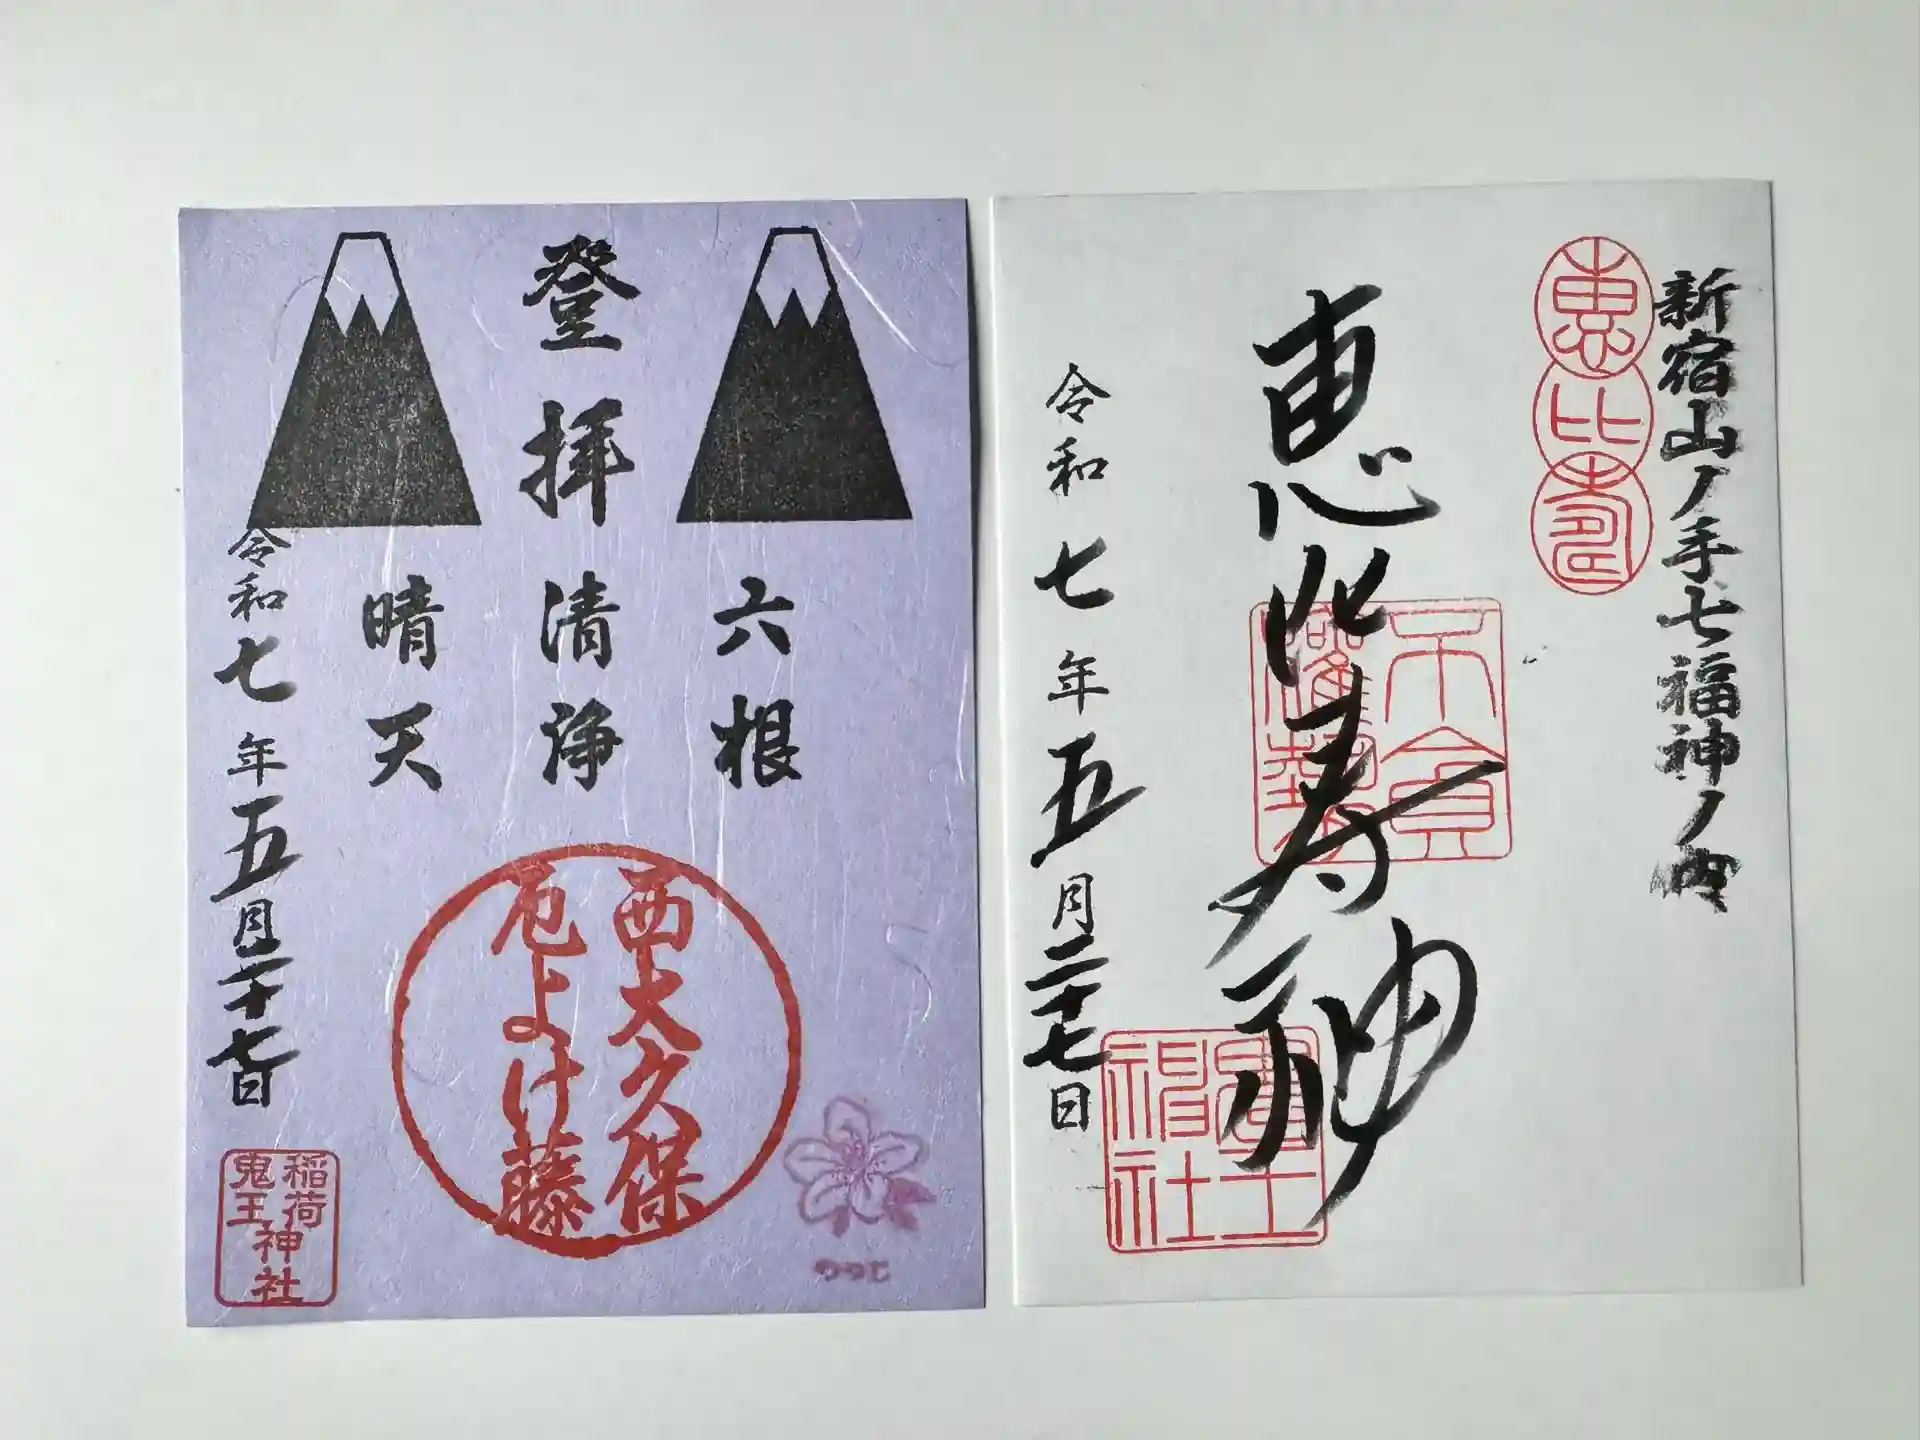 登拝
六根
清浄
晴天
西大久保
厄よけ藤
令和七年五月二十七日
稲荷
鬼王
神社
つつじ
新宿山ノ手七福神ノ内
恵比寿
恵比寿神
令和七年五月二十七日